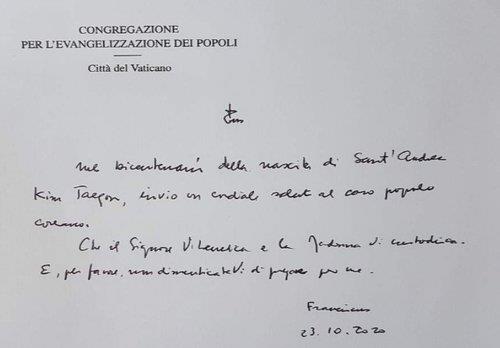 CONGREGAZIONE
PER L'EVANGELIZZAZIONE DEI POPOLI
Città del Vaticano
Nel bicentenario della nascita di Sant'Andrea
Kim Taegon, invio un cordiale saluto al caro popolo
coreano.
Che il Signore Vi benedica e la Madonna Vi custodisca.
E, per favore, non dimenticateVi di pregare per me.
Franciscus
23.10.2020